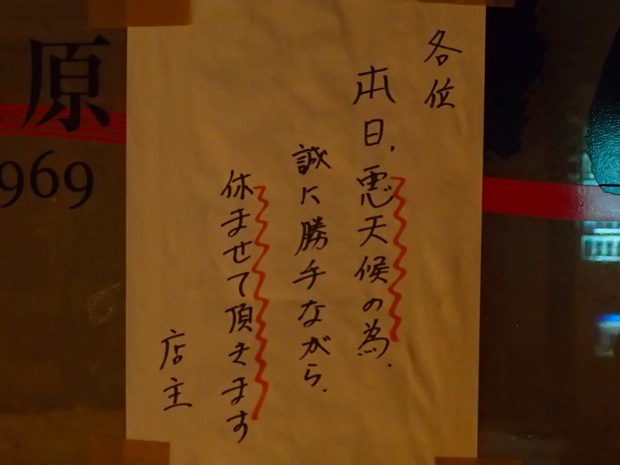 各位
本日,悪天候の為.
誠に勝手ながら.
休ませて頂きます
店主
原
969